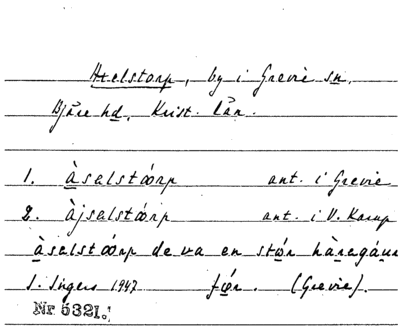 Atelstorp, by i Grevie sn.
Bjäre hd. Krist. län.
1. àsalstøørp ant. i Grevie
2. Àjsalstøørp ant. i V. Karup
àsalstøørp de va en stør hàragáur
S. Ingers 1947 føør. (Grevie).
Nr 5321.